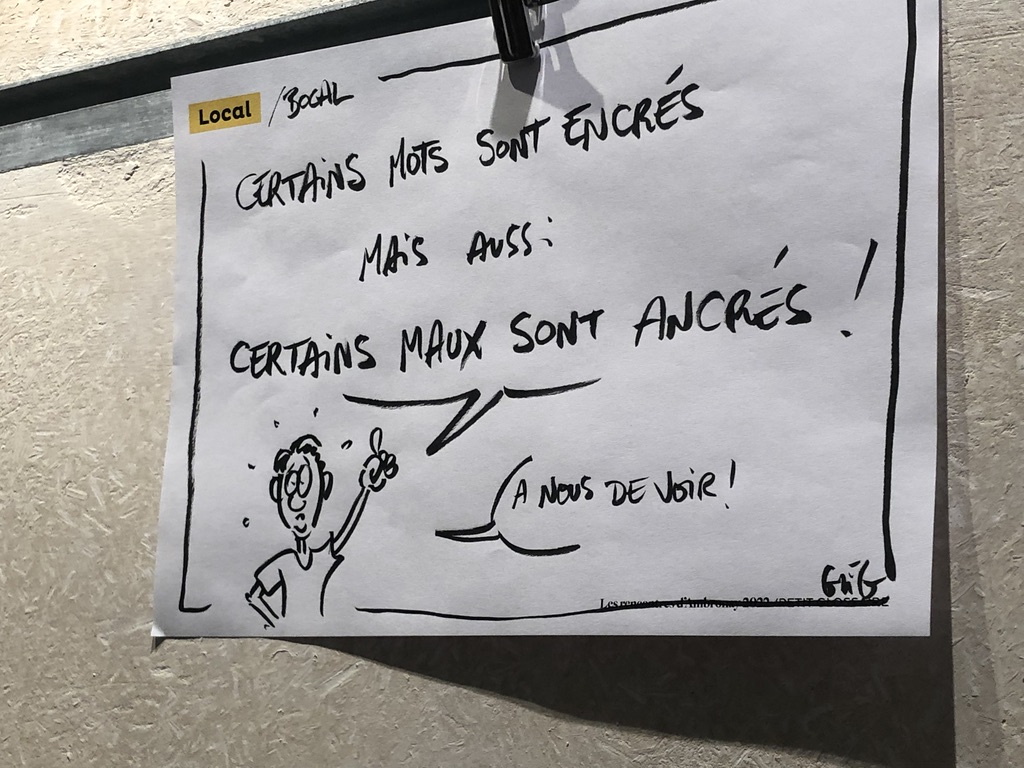 Local /BOGAL
CERTAINS MOTS SONT ENCRÉS
MAIS AUSSI
CERTAINS MAUX SONT ANCRÉS !
A NOUS DE VOIR !
Les rencontres d'Ambronay 2022 /PETIT GLOSSAIRE